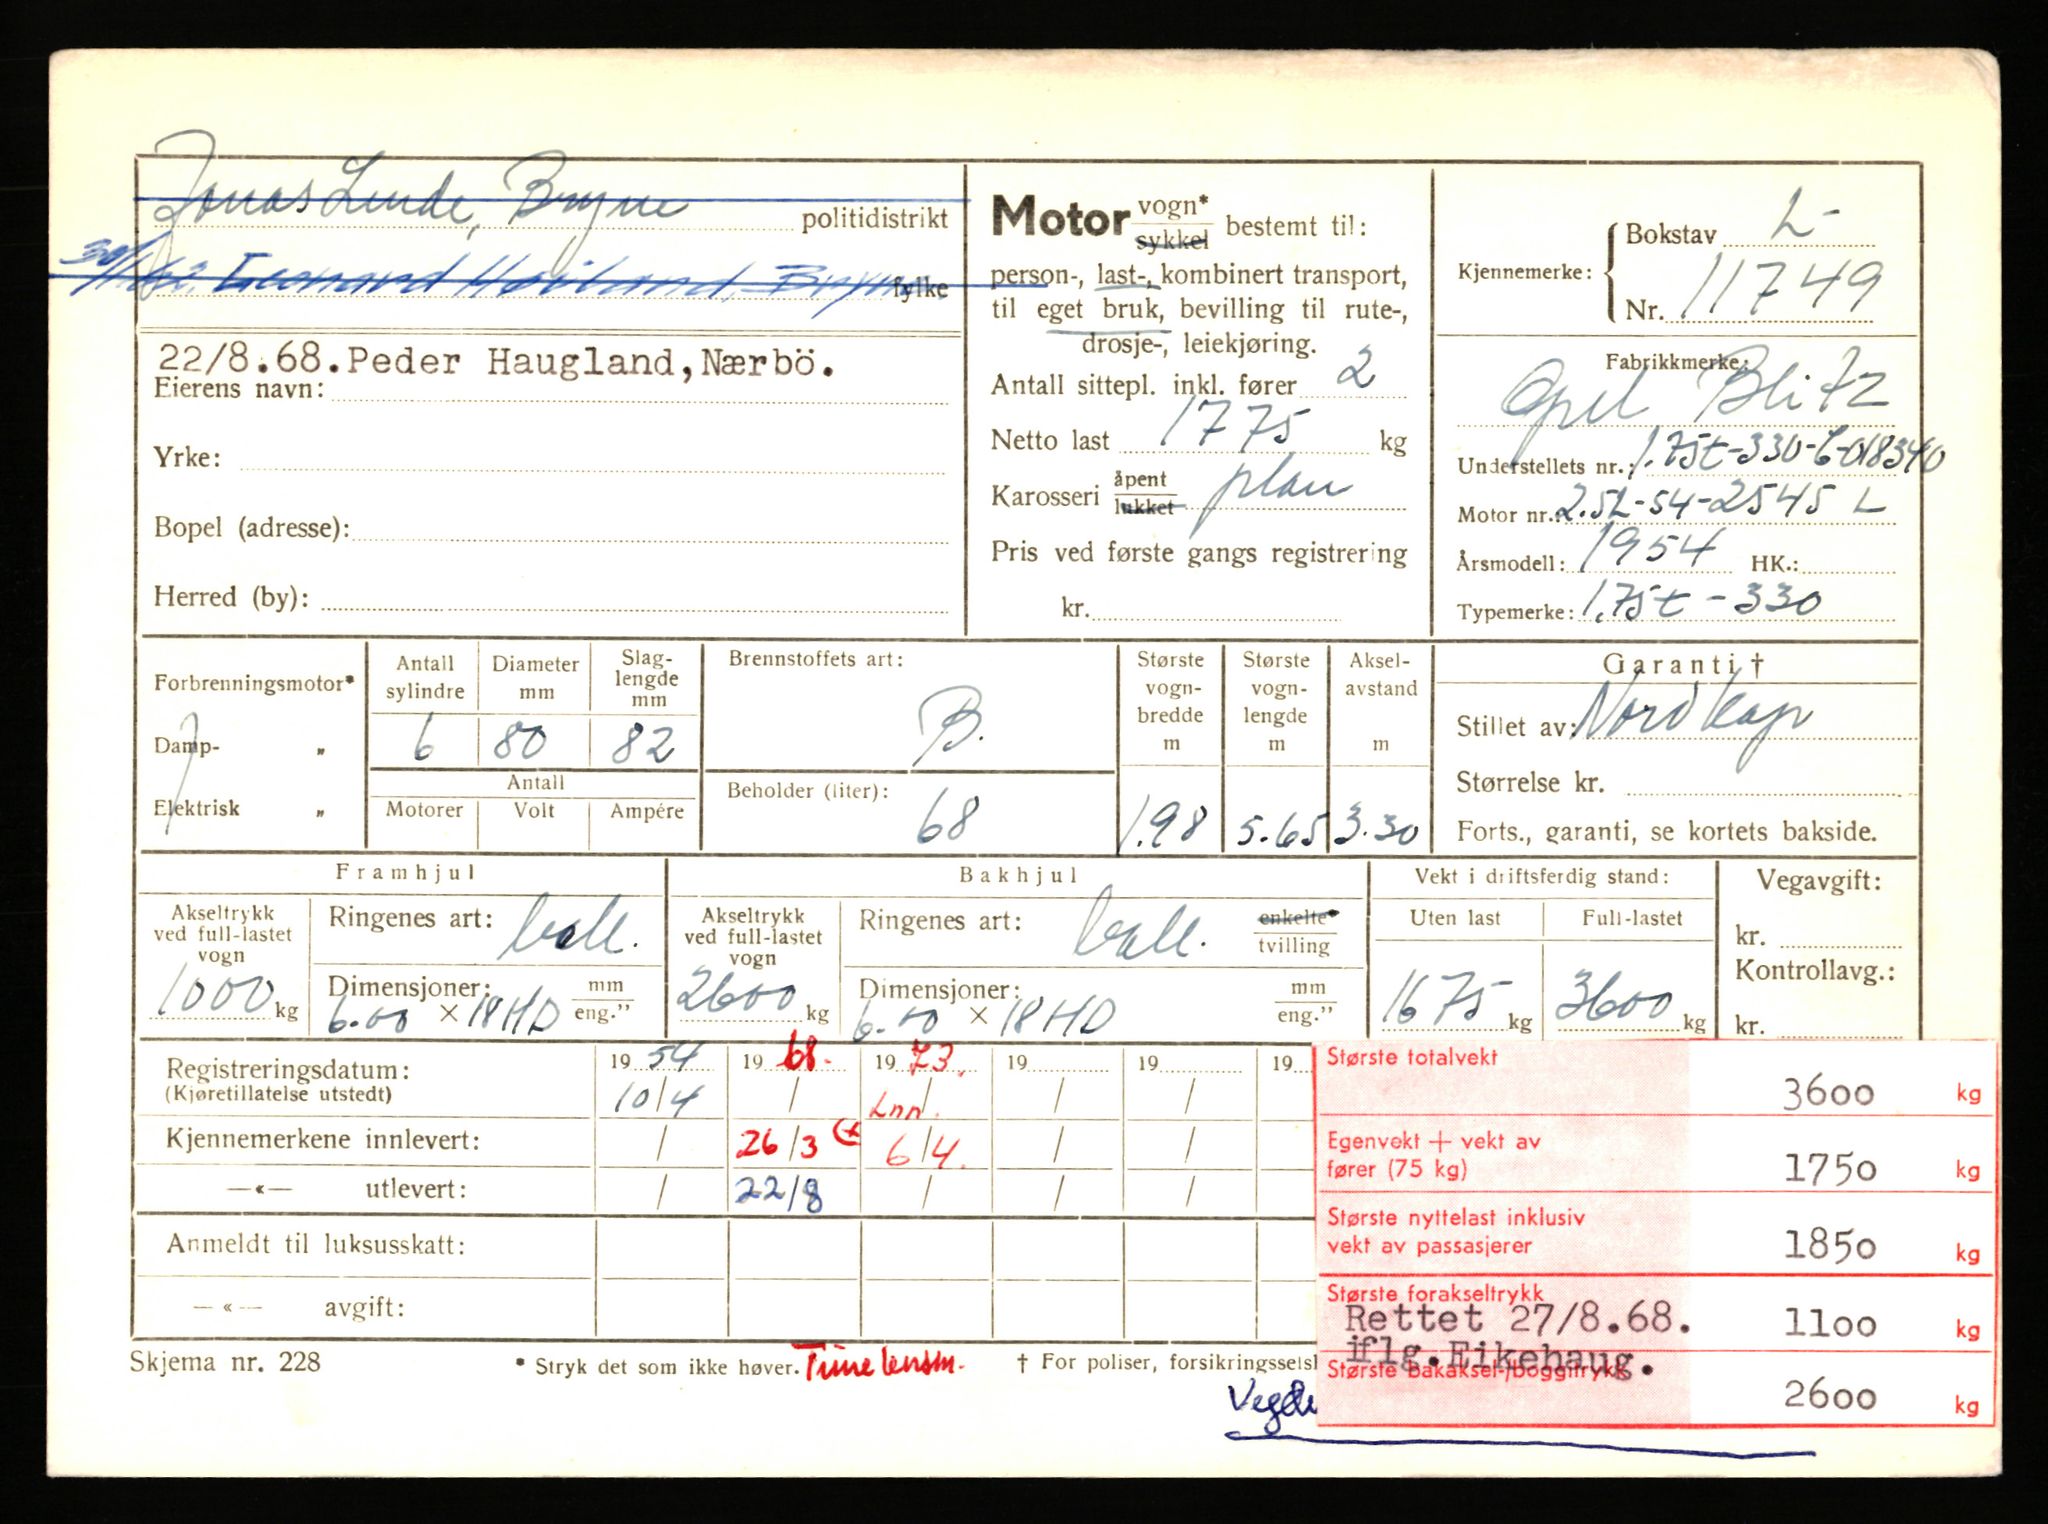 Jonas Lende, Bryne politidistrikt
fylke
22/8.68. Peder Haugland, Nærbö.
Eierens navn:
Yrke:
Bopel (adresse):
Herred (by):
Motor vogn* sykkel bestemt til:
person-, last-, kombinert transport,
til eget bruk, bevilling til rute-,
drosje-, leiekjøring.
Antall sittepl. inkl. fører 2
Netto last 1775 kg
Karosseri åpent lukket plan
Pris ved første gangs registrering
kr.
Kjennemerke: Bokstav L-
Nr. 11749
Fabrikkmerke:
Opel Blitz
Understellets nr.: 1.75t-330-6-018340
Motor nr.: 2.5L-54-2545 L
Årsmodell: 1954 HK.:
Typemerke: 1.75t-330
Forbrenningsmotor*
Damp- „
Elektrisk „
Antall sylindre 6
Diameter mm 80
Slaglengde mm 82
Antall
Motorer Volt Ampére
Brennstoffets art: B.
Beholder (liter): 68
Største vognbredde m 1.98
Største vognlengde m 5.65
Akselavstand m 3.30
Garanti †
Stillet av: Nordkap
Størrelse kr.
Forts., garanti, se kortets bakside.
Framhjul
Akseltrykk ved full-lastet vogn 1000 kg
Ringenes art: ball.
Dimensjoner: mm eng."
6.00 × 18 HD
Bakhjul
Akseltrykk ved full-lastet vogn 2600 kg
Ringenes art: ball. enkelte* tvilling
Dimensjoner: mm eng."
6.00 × 18 HD
Vekt i driftsferdig stand:
Uten last 1675 kg
Full-lastet 3600 kg
Vegavgift:
kr.
Kontrollavg.:
kr.
Registreringsdatum: 19 54 19 68. 19 73. 19 19 19
(Kjøretillatelse utstedt) 10/4 / Inn. / / /
Kjennemerkene innlevert: / 26/3 6/4. / /
—«— utlevert: / 22/8 / / /
Anmeldt til luksusskatt:
—«— avgift:
Største totalvekt 3600 kg
Egenvekt + vekt av fører (75 kg) 1750 kg
Største nyttelast inklusiv vekt av passasjerer 1850 kg
Største forakseltrykk 1100 kg
Rettet 27/8.68.
iflg. Eikehaug.
Største bakaksel-/boggitrykk 2600 kg
Skjema nr. 228
* Stryk det som ikke høver. Time lensm.
† For poliser, forsikringsselsk